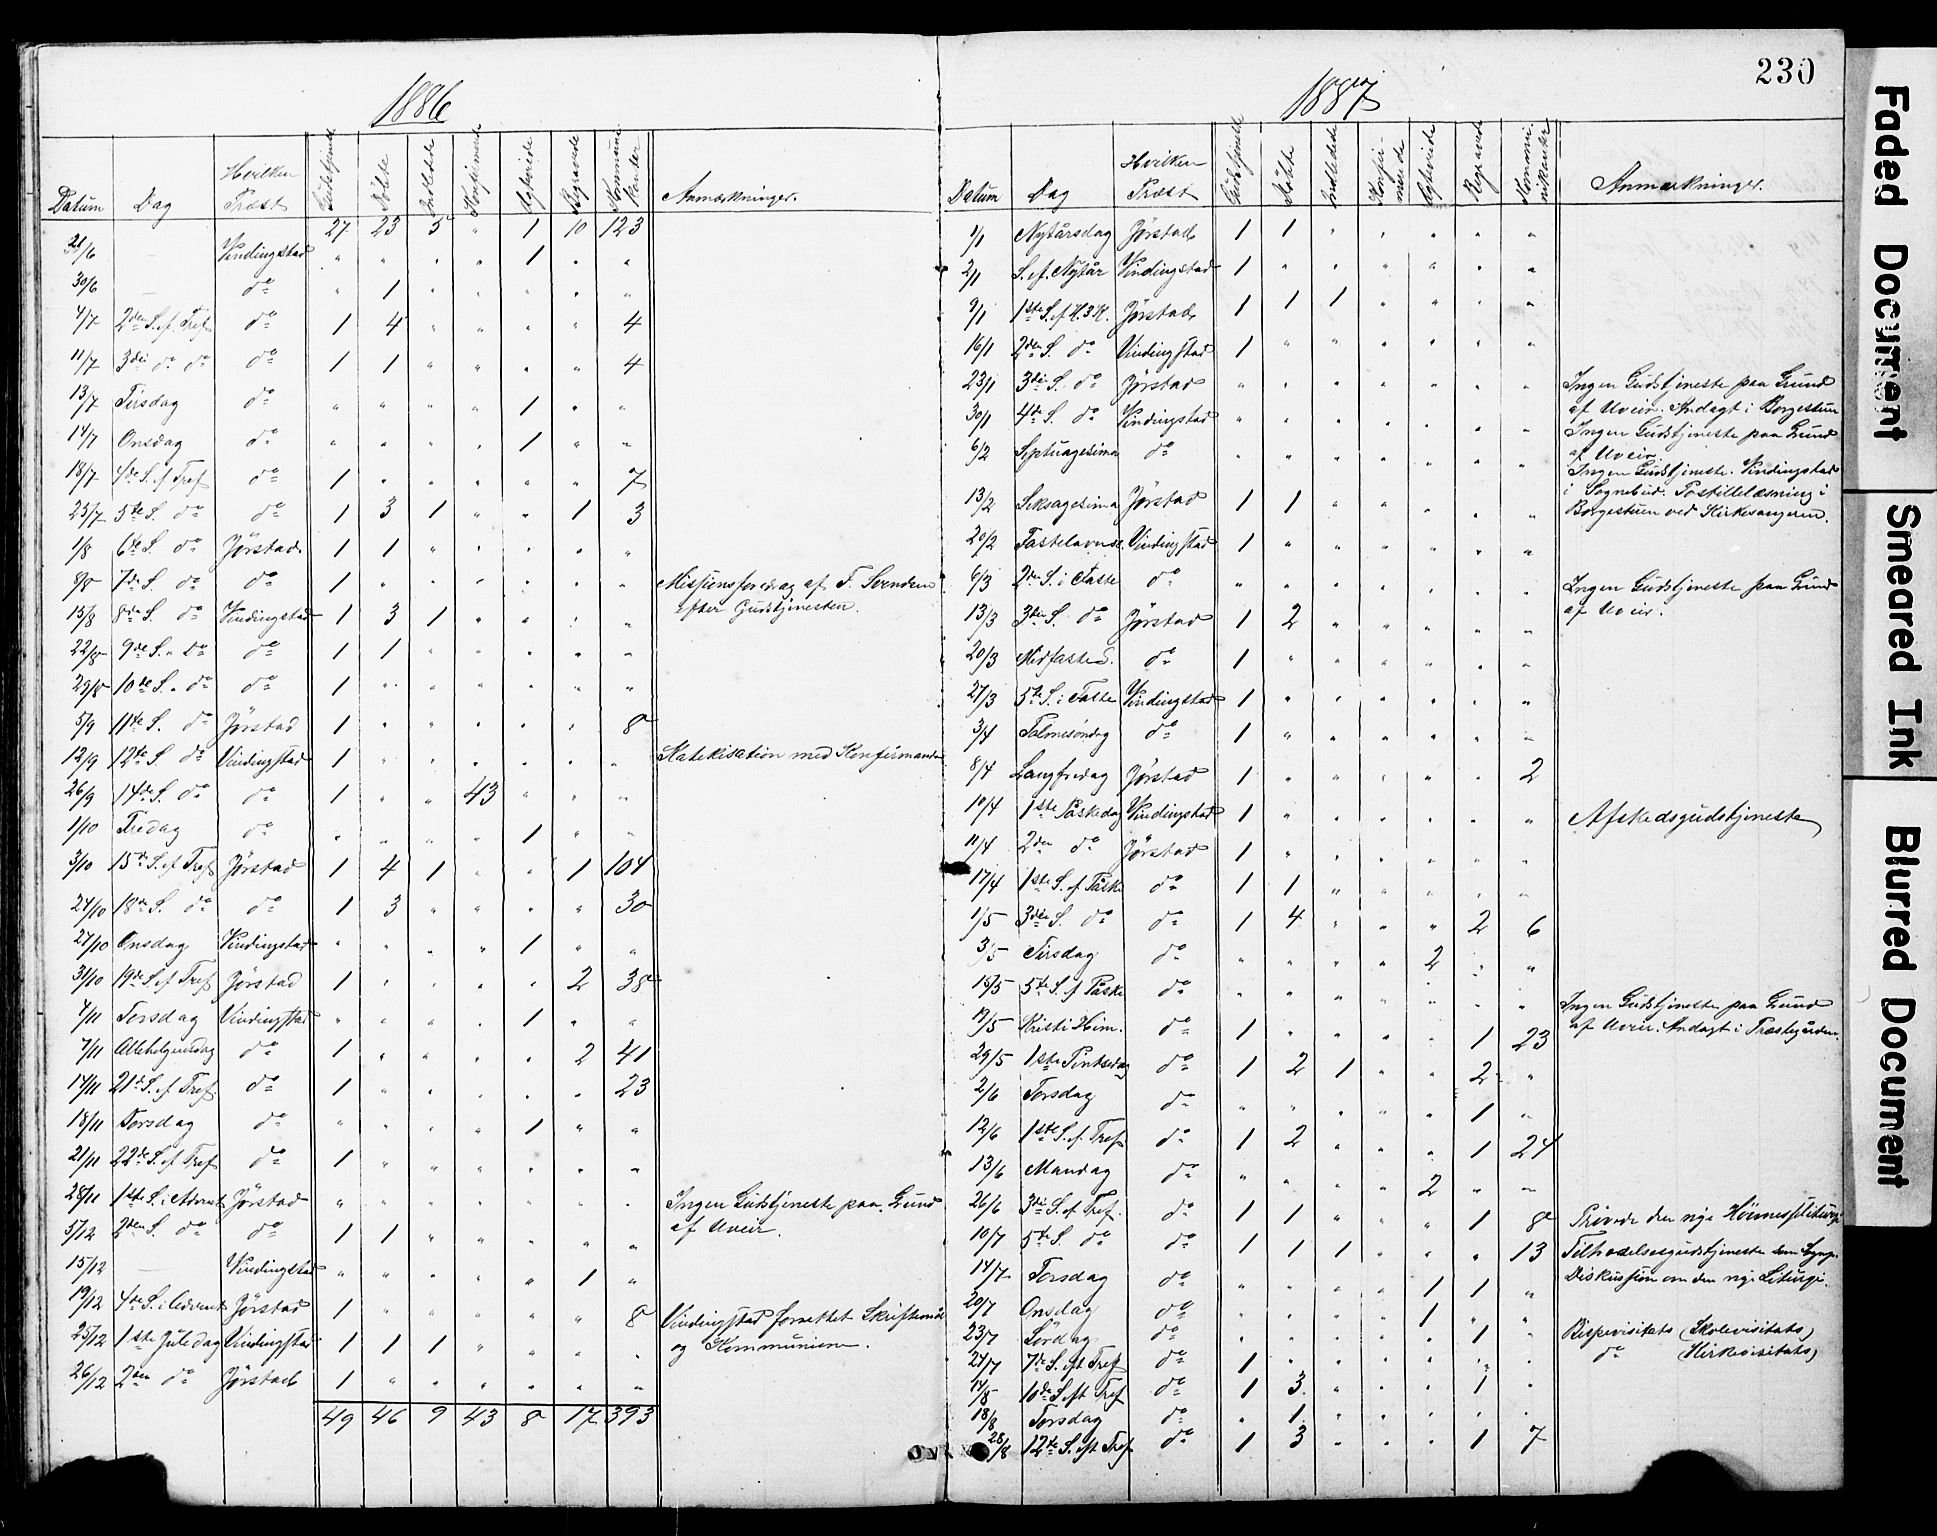 230
1886
Datum Dag Hvilken Præst Gudstjeneste Døbte Indledede Konfirmerede Ægteviede Begravede Kommunikanter Anmærkninger.
27 23 5 " 1 10 123
21/6 — Vindingstad " " " " 1 " "
30/6 — do " 1 " " " " "
4/7 2den S. ef. Tref. do 1 4 " " " " 4
11/7 3die do do do 1 1 " " " " 4
13/7 Tirsdag do " " " " 1 " "
14/7 Onsdag do " " " " 1 " "
18/7 4de S. ef Tref do 1 " " " " " 7
25/7 5te S. do do 1 3 1 " " 1 3
1/8 6te S. do Jørstad 1 1 " " " " "
8/8 7de S. do do 1 " " " " " " Missionsforedrag af F. Svendsen
efter Gudstjenesten.
15/8 8de S. do Vindingstad 1 3 1 " " " "
22/8 9de S. " do do 1 1 " " " " "
29/8 10de S. " do do 1 " " " " " "
5/9 11te S. do Jørstad 1 " " " " " 8
12/9 12te S. do Vindingstad 1 " " " " " " Katekisation med Konfirmander
26/9 14de S. do do 1 " " 43 " " "
1/10 Fredag do " " " " 1 " "
3/10 15de S. ef Tref Jørstad 1 4 1 " " 1 104
24/10 18de S. do do 1 3 " " " " 30
27/10 Onsdag Vindingstad " " " " 1 " "
31/10 19de S. ef Tref Jørstad 1 " " " " 2 38
4/11 Torsdag Vindingstad " " " " 1 " "
7/11 Allehelgensdag do 1 " " " " 2 41
14/11 21de S. ef Tref. do 1 " " " " " 23
18/11 Torsdag do " " " " 1 " "
21/11 22de S. ef Tref do 1 " " " " " "
28/11 1ste S. i Advent Jørstad " " " " " " " Ingen Gudstjeneste paa Grund
af Uveir.
5/12 2den S. do do 1 1 " " " " "
15/12 — Vindingstad " " " " " 1 "
19/12 4de S. i Advent Jørstad 1 " " " " " 8 Vindingstad forrettet Skriftemål
og Kommunion.
25/12 1ste Juledag Vindingstad 1 1 1 " " " "
26/12 2den do Jørstad 1 " " " " " "
49 46 9 43 8 17 393
1887
Datum Dag Hvilken Præst Gudstjeneste Døbte Indledede Konfirmerede Ægteviede Begravede Kommunikanter Anmærkninger.
1/1 Nytårsdag Jørstad 1 1 " " " " "
2/1 S. ef. Nytår Vindingstad 1 " " " " " "
9/1 1ste S. ef H. 3 K. Jørstad 1 1 1 " " " "
16/1 2den S. do Vindingstad 1 " " " " " "
23/1 3die S. do Jørstad " " " " " " " Ingen Gudstjeneste paa Grund
af Uveir. Andagt i Borgestuen
30/1 4de S. do Vindingstad " " " " " " " Ingen Gudstjeneste paa Grund
af Uveir.
6/2 Septuagesima do " " " " " " " Ingen Gudstjeneste. Vindingstad
i Sognebud. Postillelæsning i
Borgestuen ved Kirkesangeren.
13/2 Seksagesima Jørstad 1 1 " " " " "
20/2 Fastelavnss. Vindingstad 1 " " " " " "
6/3 2den S. i Faste do " " " " " " " Ingen Gudstjeneste paa Grund
af Uveir.
13/3 3die S. do Jørstad 1 2 " " " " "
20/3 Midfaste S. do 1 " " " " " "
27/3 5te S. i Faste Vindingstad 1 " " " " " "
3/4 Palmesøndag do 1 " " " " " "
8/4 Langfredag Jørstad 1 " " " " " 2
10/4 1ste Påskedag Vindingstad 1 " " " " " " Afskedsgudstjeneste
11/4 2den do Jørstad 1 " " " " " "
17/4 1ste S. ef Påske do 1 1 " " " " "
1/5 3die S. do do 1 4 " " " 2 6
3/5 Tirsdag do " " " " 2 " "
15/5 5te S. ef Påske do " " " " " " " Ingen Gudstjeneste paa Grund
af Uveir. Andagt i Præstegården.
19/5 Kristi Him. do 1 " " " " 1 23
29/5 1ste Pintsedag do 1 2 1 " " 2 "
2/6 Torsdag do " " " " " 1 "
12/6 1ste S. ef. Tref do 1 2 " " " 1 24
13/6 Mandag do " " " " 2 " "
26/6 3die S. ef Tref. do 1 1 " " " 1 8 Prøvede den nye Høimesseliturgi
10/7 5te S. do do 1 1 1 " " " 13 Tilbedelsesgudstjeneste
Diskussion om den nye Liturgi.
14/7 Torsdag do " " " " 1 1 "
20/7 Onsdag do " " " " 1 " "
23/7 Lørdag do " " " " " 1 " Bispevisitats (Skolevisitats)
24/7 7de S. eft Tref do 1 " " " " " " do (Kirkevisitats)
14/8 10de S. eft Tref do 1 3 " " " 1 "
18/8 Torsdag do " 1 " " " " "
28/8 12te S. eft Tref do 1 3 " " " 1 7
Faded Document
Smeared Ink
Blurred Document